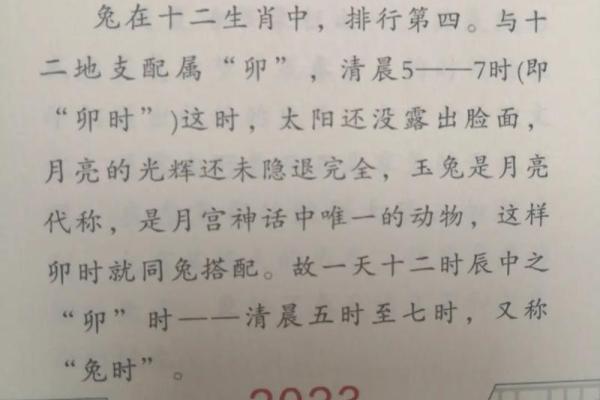 兔在十二生肖中，排行第四。与十
二地支配属“卯”，清晨5——7时(即
“卯时”)这时，太阳还没露出脸面，
月亮的光辉还未隐退完全，玉兔是月亮
代称，是月宫神话中唯一的动物，这样
卯时就同兔搭配。故一天十二时辰中之
“卯”时——清晨五时至七时，又称
“兔时”。
2023